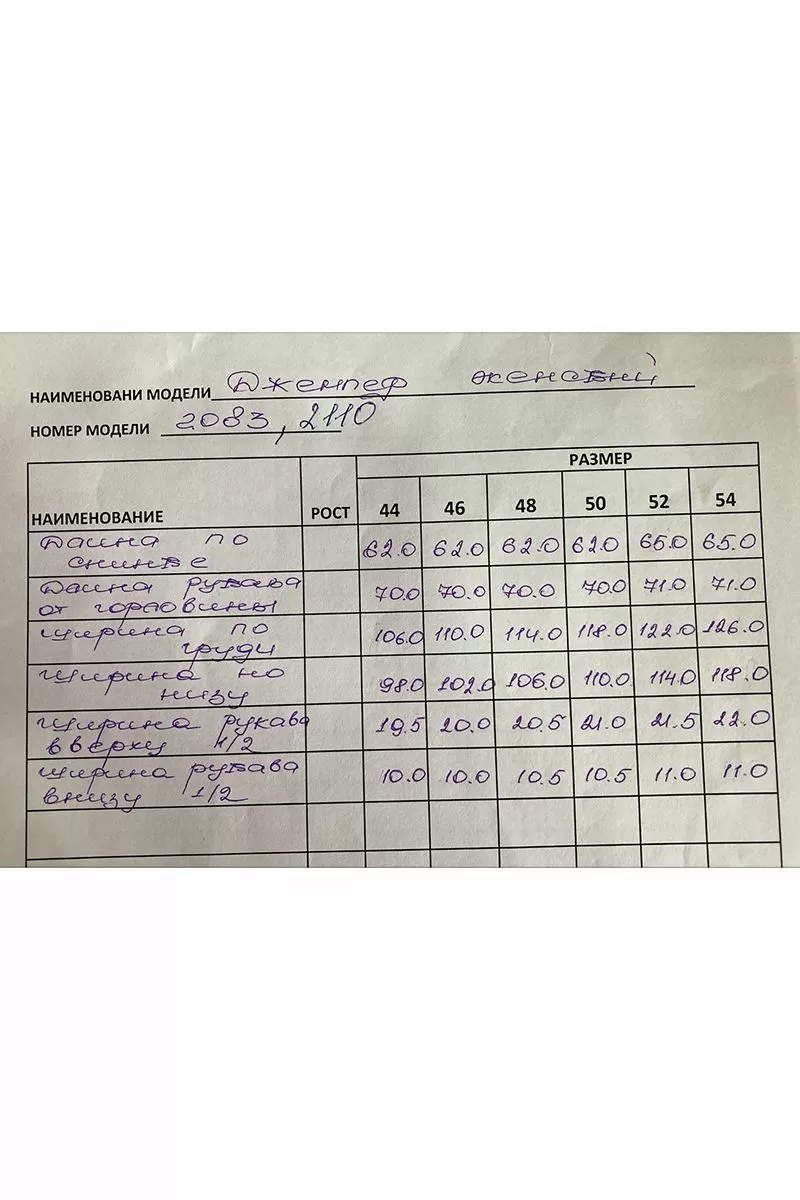 НАИМЕНОВАНИ МОДЕЛИ Джемпер женский
НОМЕР МОДЕЛИ 2083, 2110
РАЗМЕР
НАИМЕНОВАНИЕ РОСТ 44 46 48 50 52 54
Длина по
спинке 62.0 62.0 62.0 62.0 65.0 65.0
Длина рукава
от горловины 70.0 70.0 70.0 70.0 71.0 71.0
Ширина по
груди 106.0 110.0 114.0 118.0 122.0 126.0
Ширина по
низу 98.0 102.0 106.0 110.0 114.0 118.0
Ширина рукава
вверху 1/2 19.5 20.0 20.5 21.0 21.5 22.0
Ширина рукава
внизу 1/2 10.0 10.0 10.5 10.5 11.0 11.0